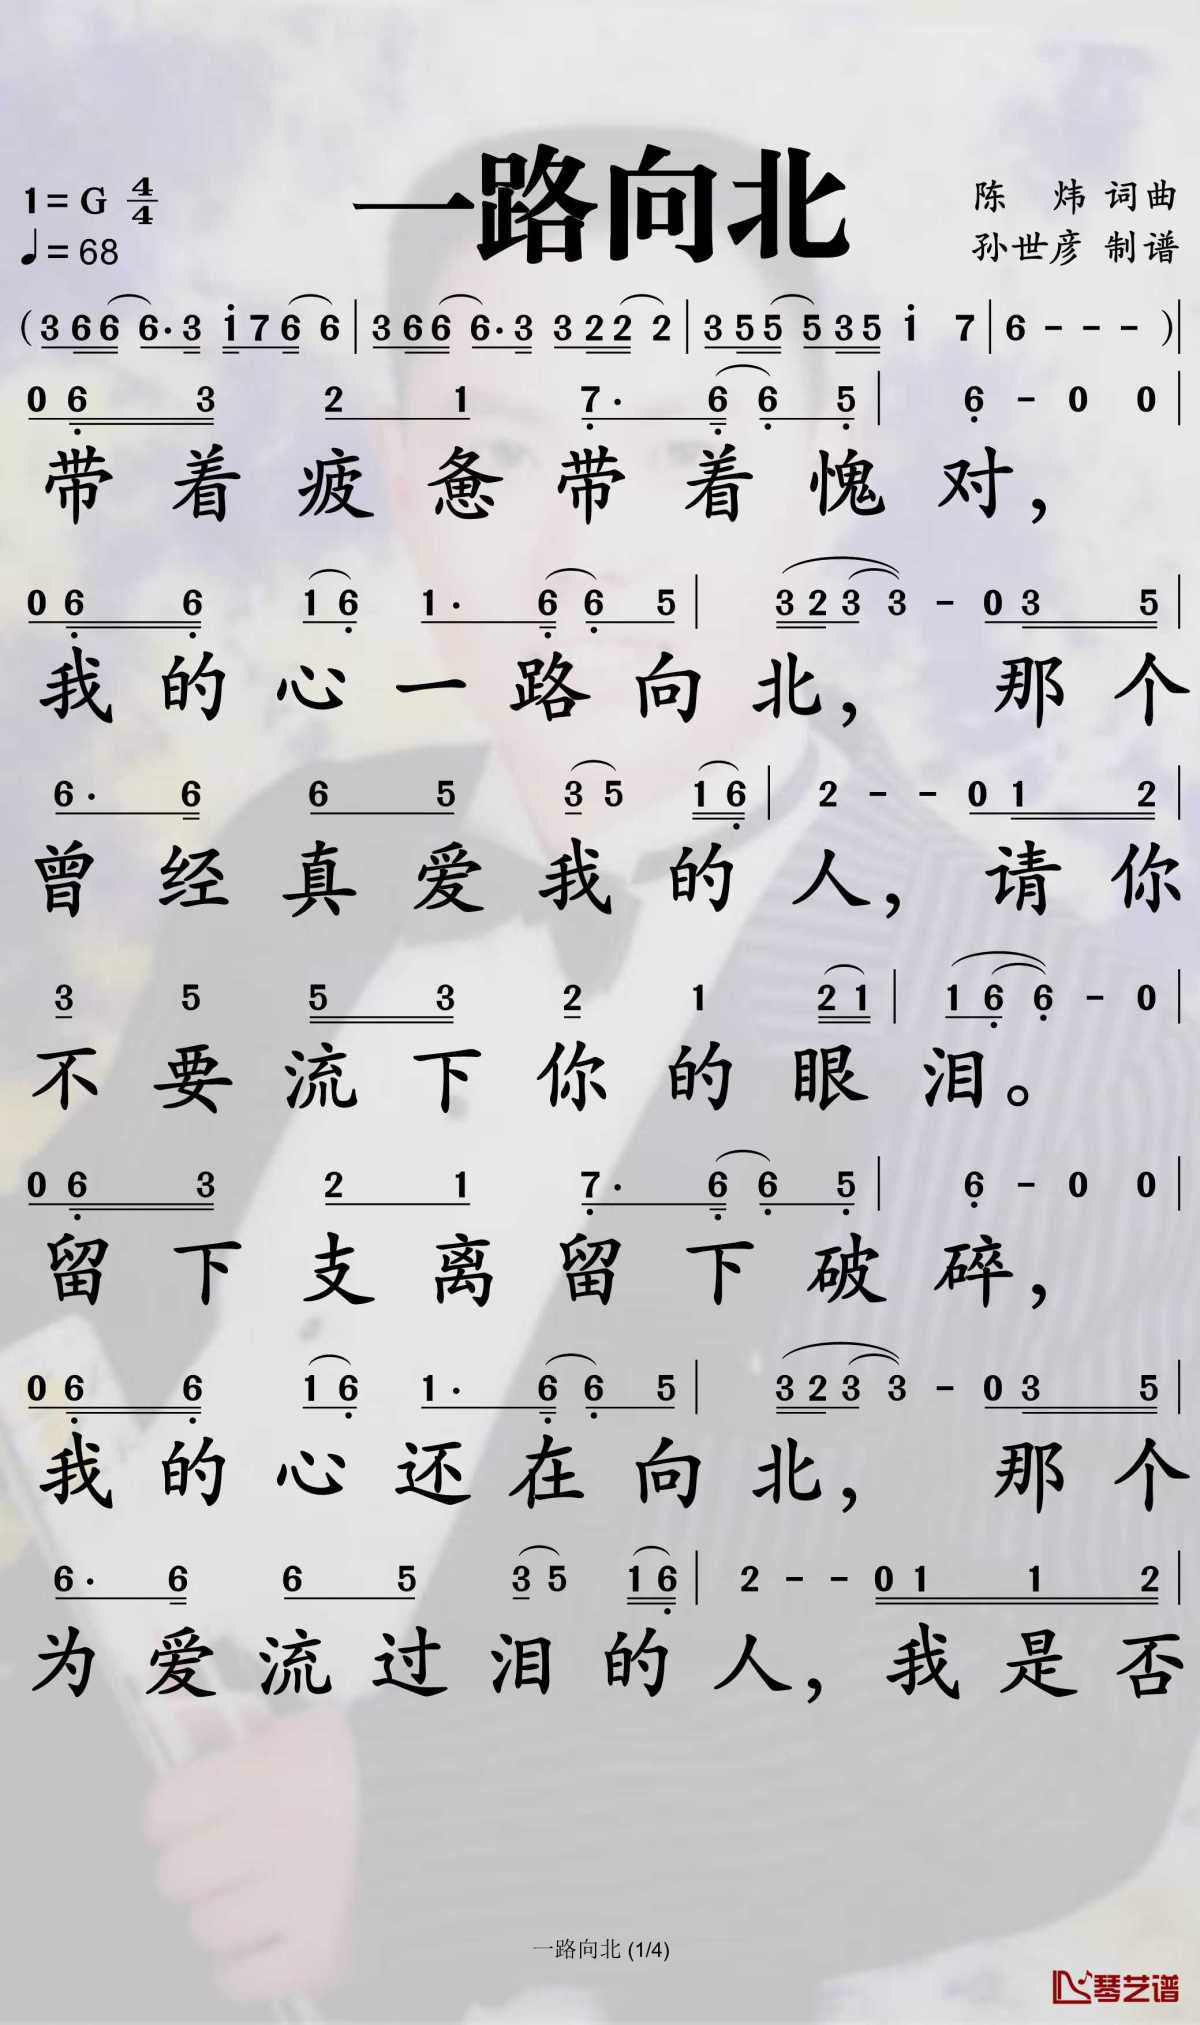 一路向北
1=G 4/4
♩=68
陈 炜 词曲
孙世彦 制谱
(3 6 6 6· 3 i 7 6 6 | 3 6 6 6· 3 3 2 2 2 | 3 5 5 5 3 5 i 7 | 6 - - - )|
0 6 3 2 1 7· 6 6 5 | 6 - 0 0 |
带着疲惫带着愧对，
0 6 6 1 6 1· 6 6 5 | 3 2 3 3 - 0 3 5 |
我的心一路向北， 那个
6· 6 6 5 3 5 1 6 | 2 - - 0 1 2 |
曾经真爱我的人， 请你
3 5 5 3 2 1 2 1 | 1 6 6 - 0 |
不要流下你的眼泪。
0 6 3 2 1 7· 6 6 5 | 6 - 0 0 |
留下支离留下破碎，
0 6 6 1 6 1· 6 6 5 | 3 2 3 3 - 0 3 5 |
我的心还在向北， 那个
6· 6 6 5 3 5 1 6 | 2 - - 0 1 1 2 |
为爱流过泪的人，我是否
一路向北 (1/4)
琴艺谱